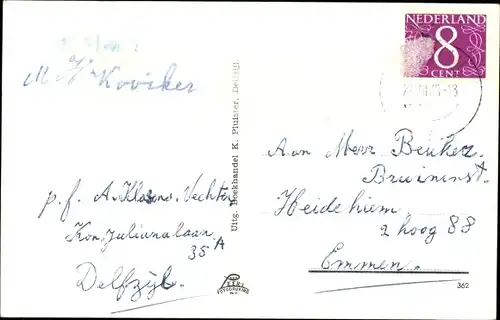 M A Koviker
p.f. A. Klasens-Vechter
Kon. Julianalaan
35 A
Delfzijl.
Uitg. Boekhandel K. Pluister, Delfzijl.
NEDERLAND
8
CENT
Aan Mevr Beuker
Bruininst
Heidehiem
2 hoog 88
Emmen.
FOTODRUKKERIJ
362